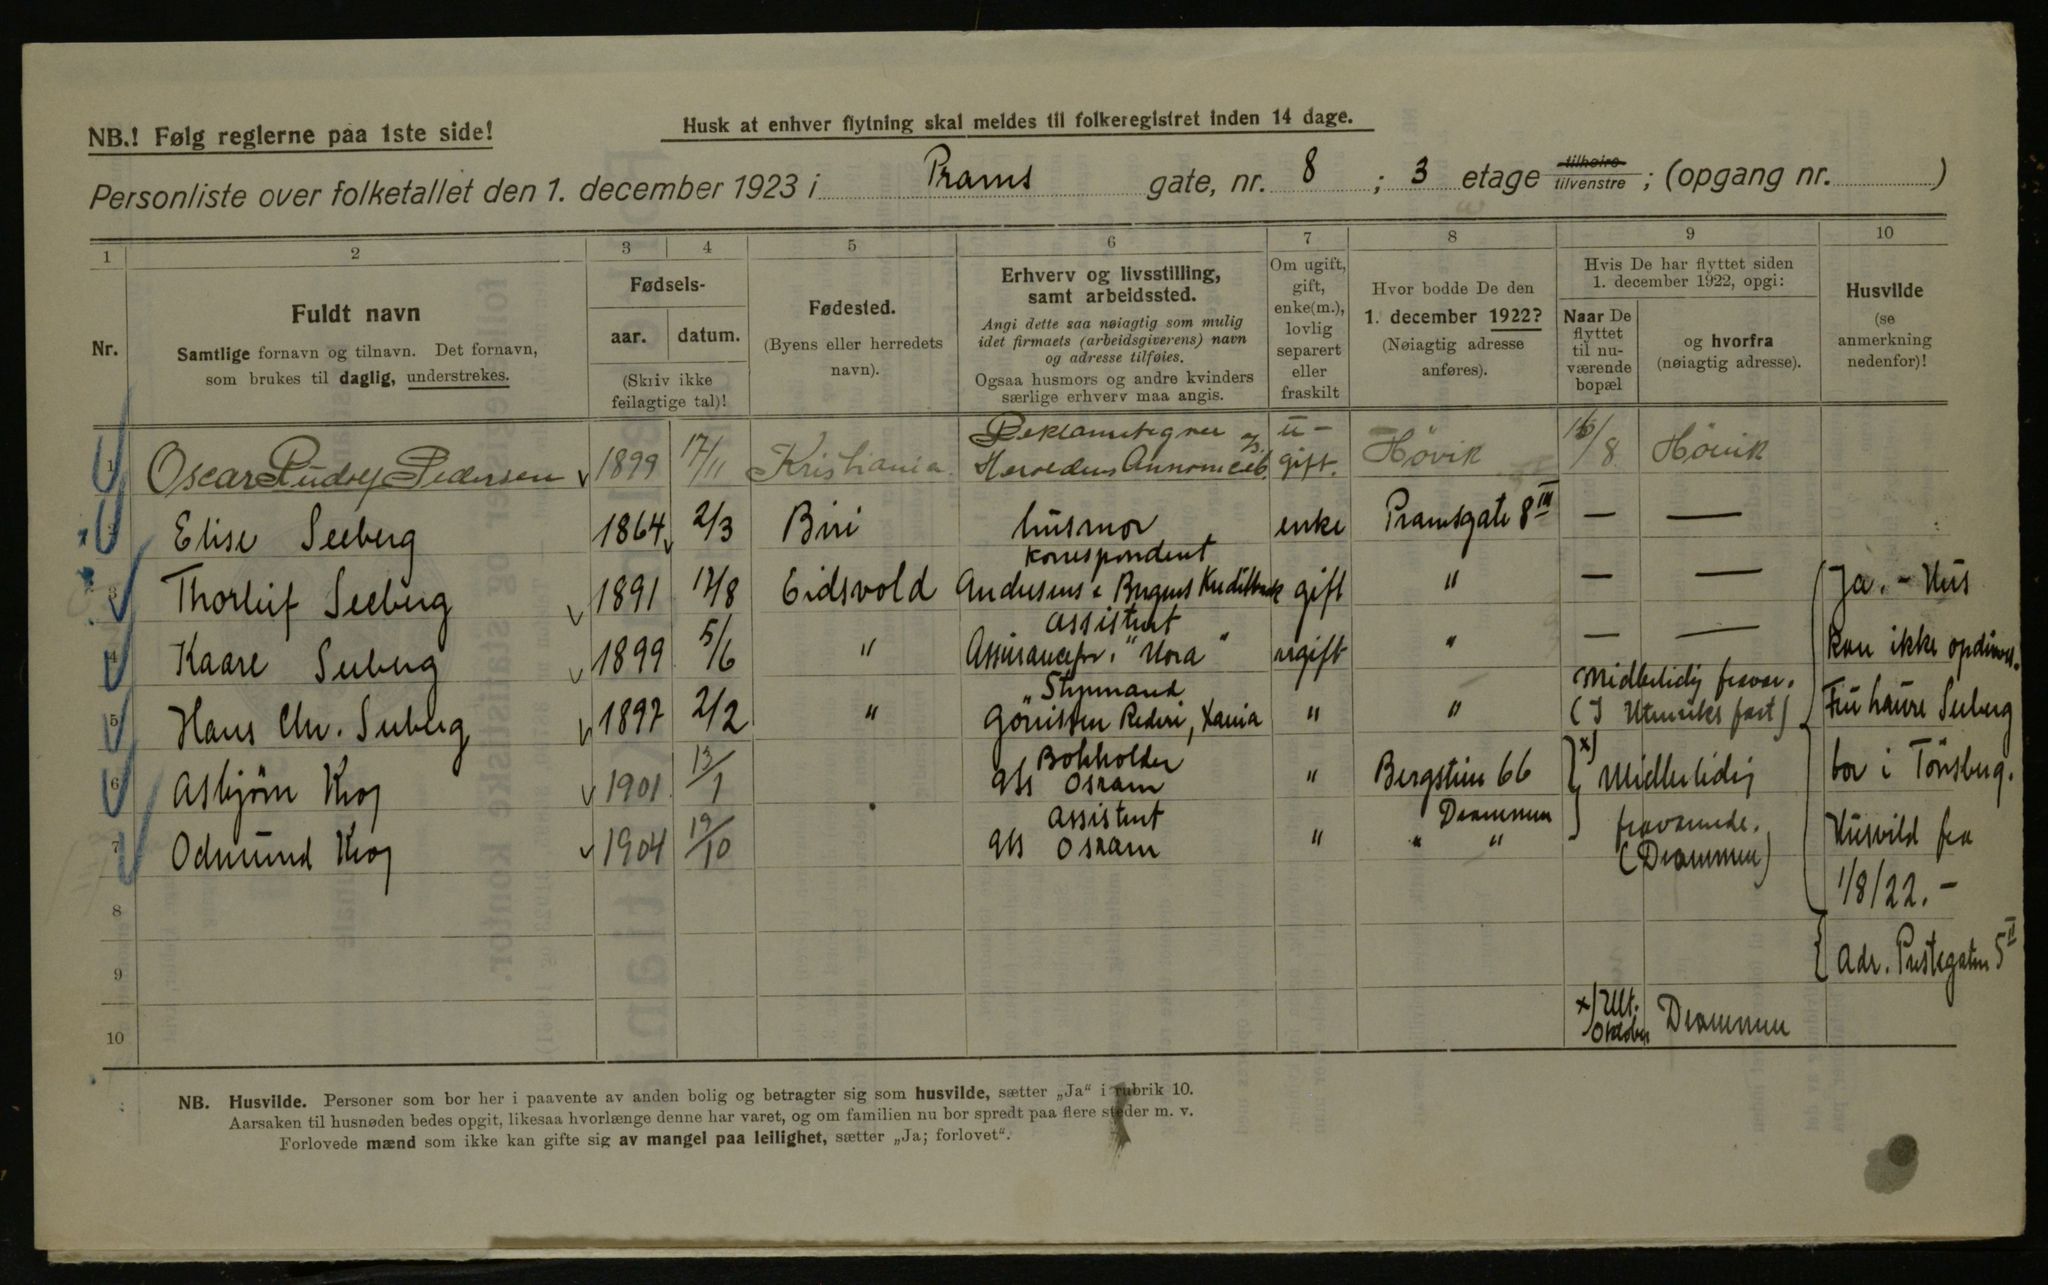 NB.! Følg reglerne paa 1ste side!
Husk at enhver flytning skal meldes til folkeregistret inden 14 dage.
Personliste over folketallet den 1. december 1923 i Prams gate, nr. 8 ; 3 etage tilhøire tilvenstre ; (opgang nr. )
1 2 3 4 5 6 7 8 9 10
Nr.
Fuldt navn
Samtlige fornavn og tilnavn. Det fornavn,
som brukes til daglig, understrekes.
Fødsels-
aar. datum.
(Skriv ikke
feilagtige tal)!
Fødested.
(Byens eller herredets
navn).
Erhverv og livsstilling,
samt arbeidssted.
Angi dette saa nøiagtig som mulig
idet firmaets (arbeidsgiverens) navn
og adresse tilføies.
Ogsaa husmors og andre kvinders
særlige erhverv maa angis.
Om ugift,
gift,
enke(m.),
lovlig
separert
eller
fraskilt
Hvor bodde De den
1. december 1922?
(Nøiagtig adresse
anføres).
Hvis De har flyttet siden
1. december 1922, opgi:
Naar De
flyttet
til nu-
værende
bopæl
og hvorfra
(nøiagtig adresse).
Husvilde
(se
anmerkning
nedenfor)!
1 Oscar Rudolf Pedersen 1899 17/11 Kristiania Reklametegner Heroldens u-gift. Høvik 16/8 Høvik
2 Elise Seeberg 1864 2/3 Biri husmor enke Pramsgate 8 III — —
3 Thorleif Seeberg 1891 17/8 Eidsvold Korrespondent Andresens & Bergens Kreditbank gift " — —
4 Kaare Seeberg 1899 5/6 " Assistent Assurancefor. "Nora" ugift " — —
5 Hans Chr. Seeberg 1897 2/2 " Styrmand Rederi, Xania " " Midlertidig fravær. (I Utenriks fart)
6 Asbjørn Krog 1901 13/1 Bokholder A/s Osram " Bergstien 66 Drammen x) Midlertidig
7 Odmund Krog 1904 19/10 Assistent A/s Osram " " " fraværende. (Drammen)
8
9
10
Ja. - Hus
kan ikke opdrives.
Fru Kaare Seeberg
bor i Tønsberg.
Husvild fra
1/8/22. -
Adr. Prestegaten 5 II
x) Ult. Oktober Drammen
NB. Husvilde. Personer som bor her i paavente av anden bolig og betragter sig som husvilde, sætter „Ja“ i rubrik 10.
Aarsaken til husnøden bedes opgit, likesaa hvorlænge denne har varet, og om familien nu bor spredt paa flere steder m. v.
Forlovede mænd som ikke kan gifte sig av mangel paa leilighet, sætter „Ja; forlovet“.